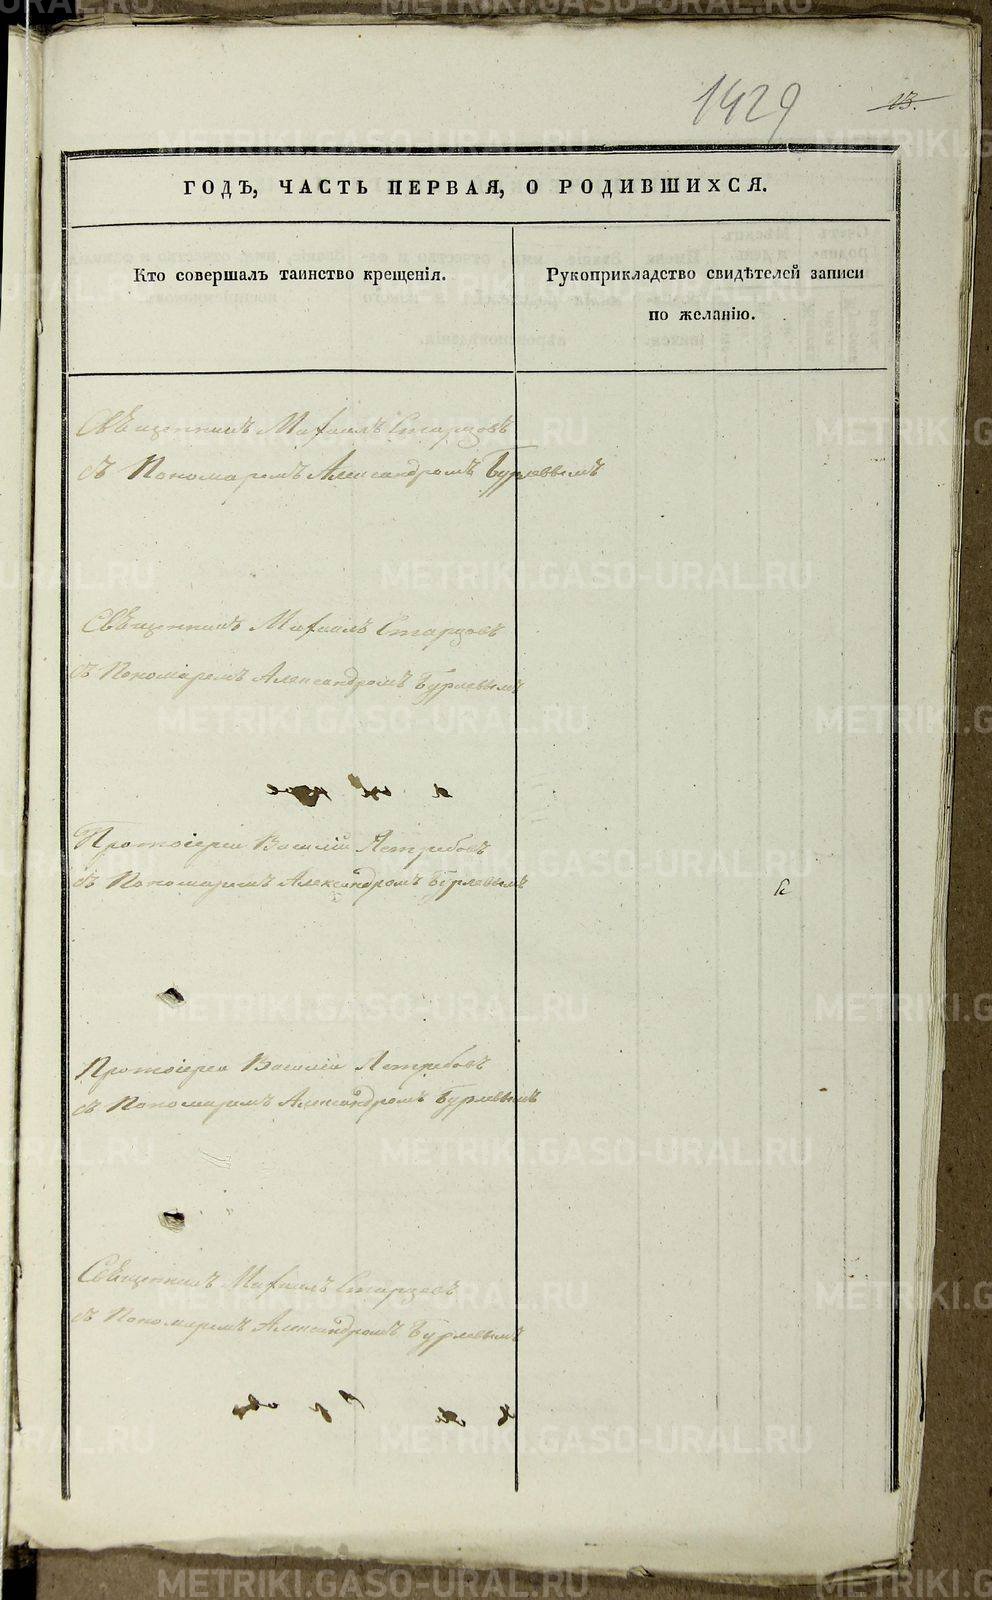 1429
13.
ГОДЪ, ЧАСТЬ ПЕРВАЯ, О РОДИВШИХСЯ.
Кто совершалъ таинство крещенія.
Рукоприкладство свидѣтелей записи
по желанію.
Священникъ Михаилъ Старцовъ
съ Пономаремъ Александромъ Бурлеввымъ
Священникъ Михаилъ Старцовъ
съ Пономаремъ Александромъ Бурлевымъ
Протоіерей Василій Ястребовъ
съ Пономаремъ Александромъ Бурлевымъ
Протоіерей Василій Ястребовъ
съ Пономаремъ Александромъ Бурлевымъ
Священникъ Михаилъ Старцовъ
съ Пономаремъ Александромъ Бурлевымъ
METRIKI.GASO-URAL.RU